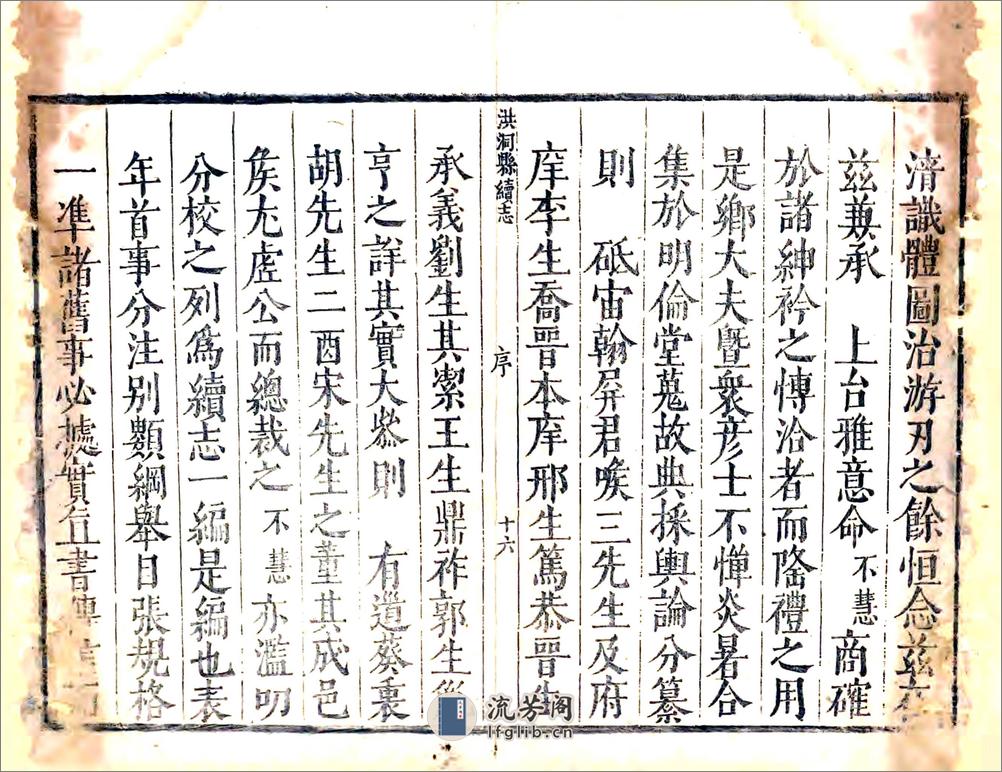 清識體圖治游刃之餘恒念茲
茲兼承　上台雅意命不慧商確
於諸紳衿之博洽者而隆禮之用
是鄉大夫暨衆彦士不憚炎暑合
集於明倫堂蒐故典採輿論分纂
則　砥宙翰屏君喉三先生及府
庠李生喬晉本庠邢生篤恭晉生
洪洞縣續志　序　十六
承義劉生其潔王生鼎祚郭生
亨之詳其實大槩則　有道葵裏
胡先生二酉宋先生之董其成邑
矦尤虗公而總裁之不慧亦濫叨
分校之列爲續志一編是編也表
年首事分注別類綱舉目張規格
一準諸舊事必據實㫖書
流芳阁
lfglib.cn